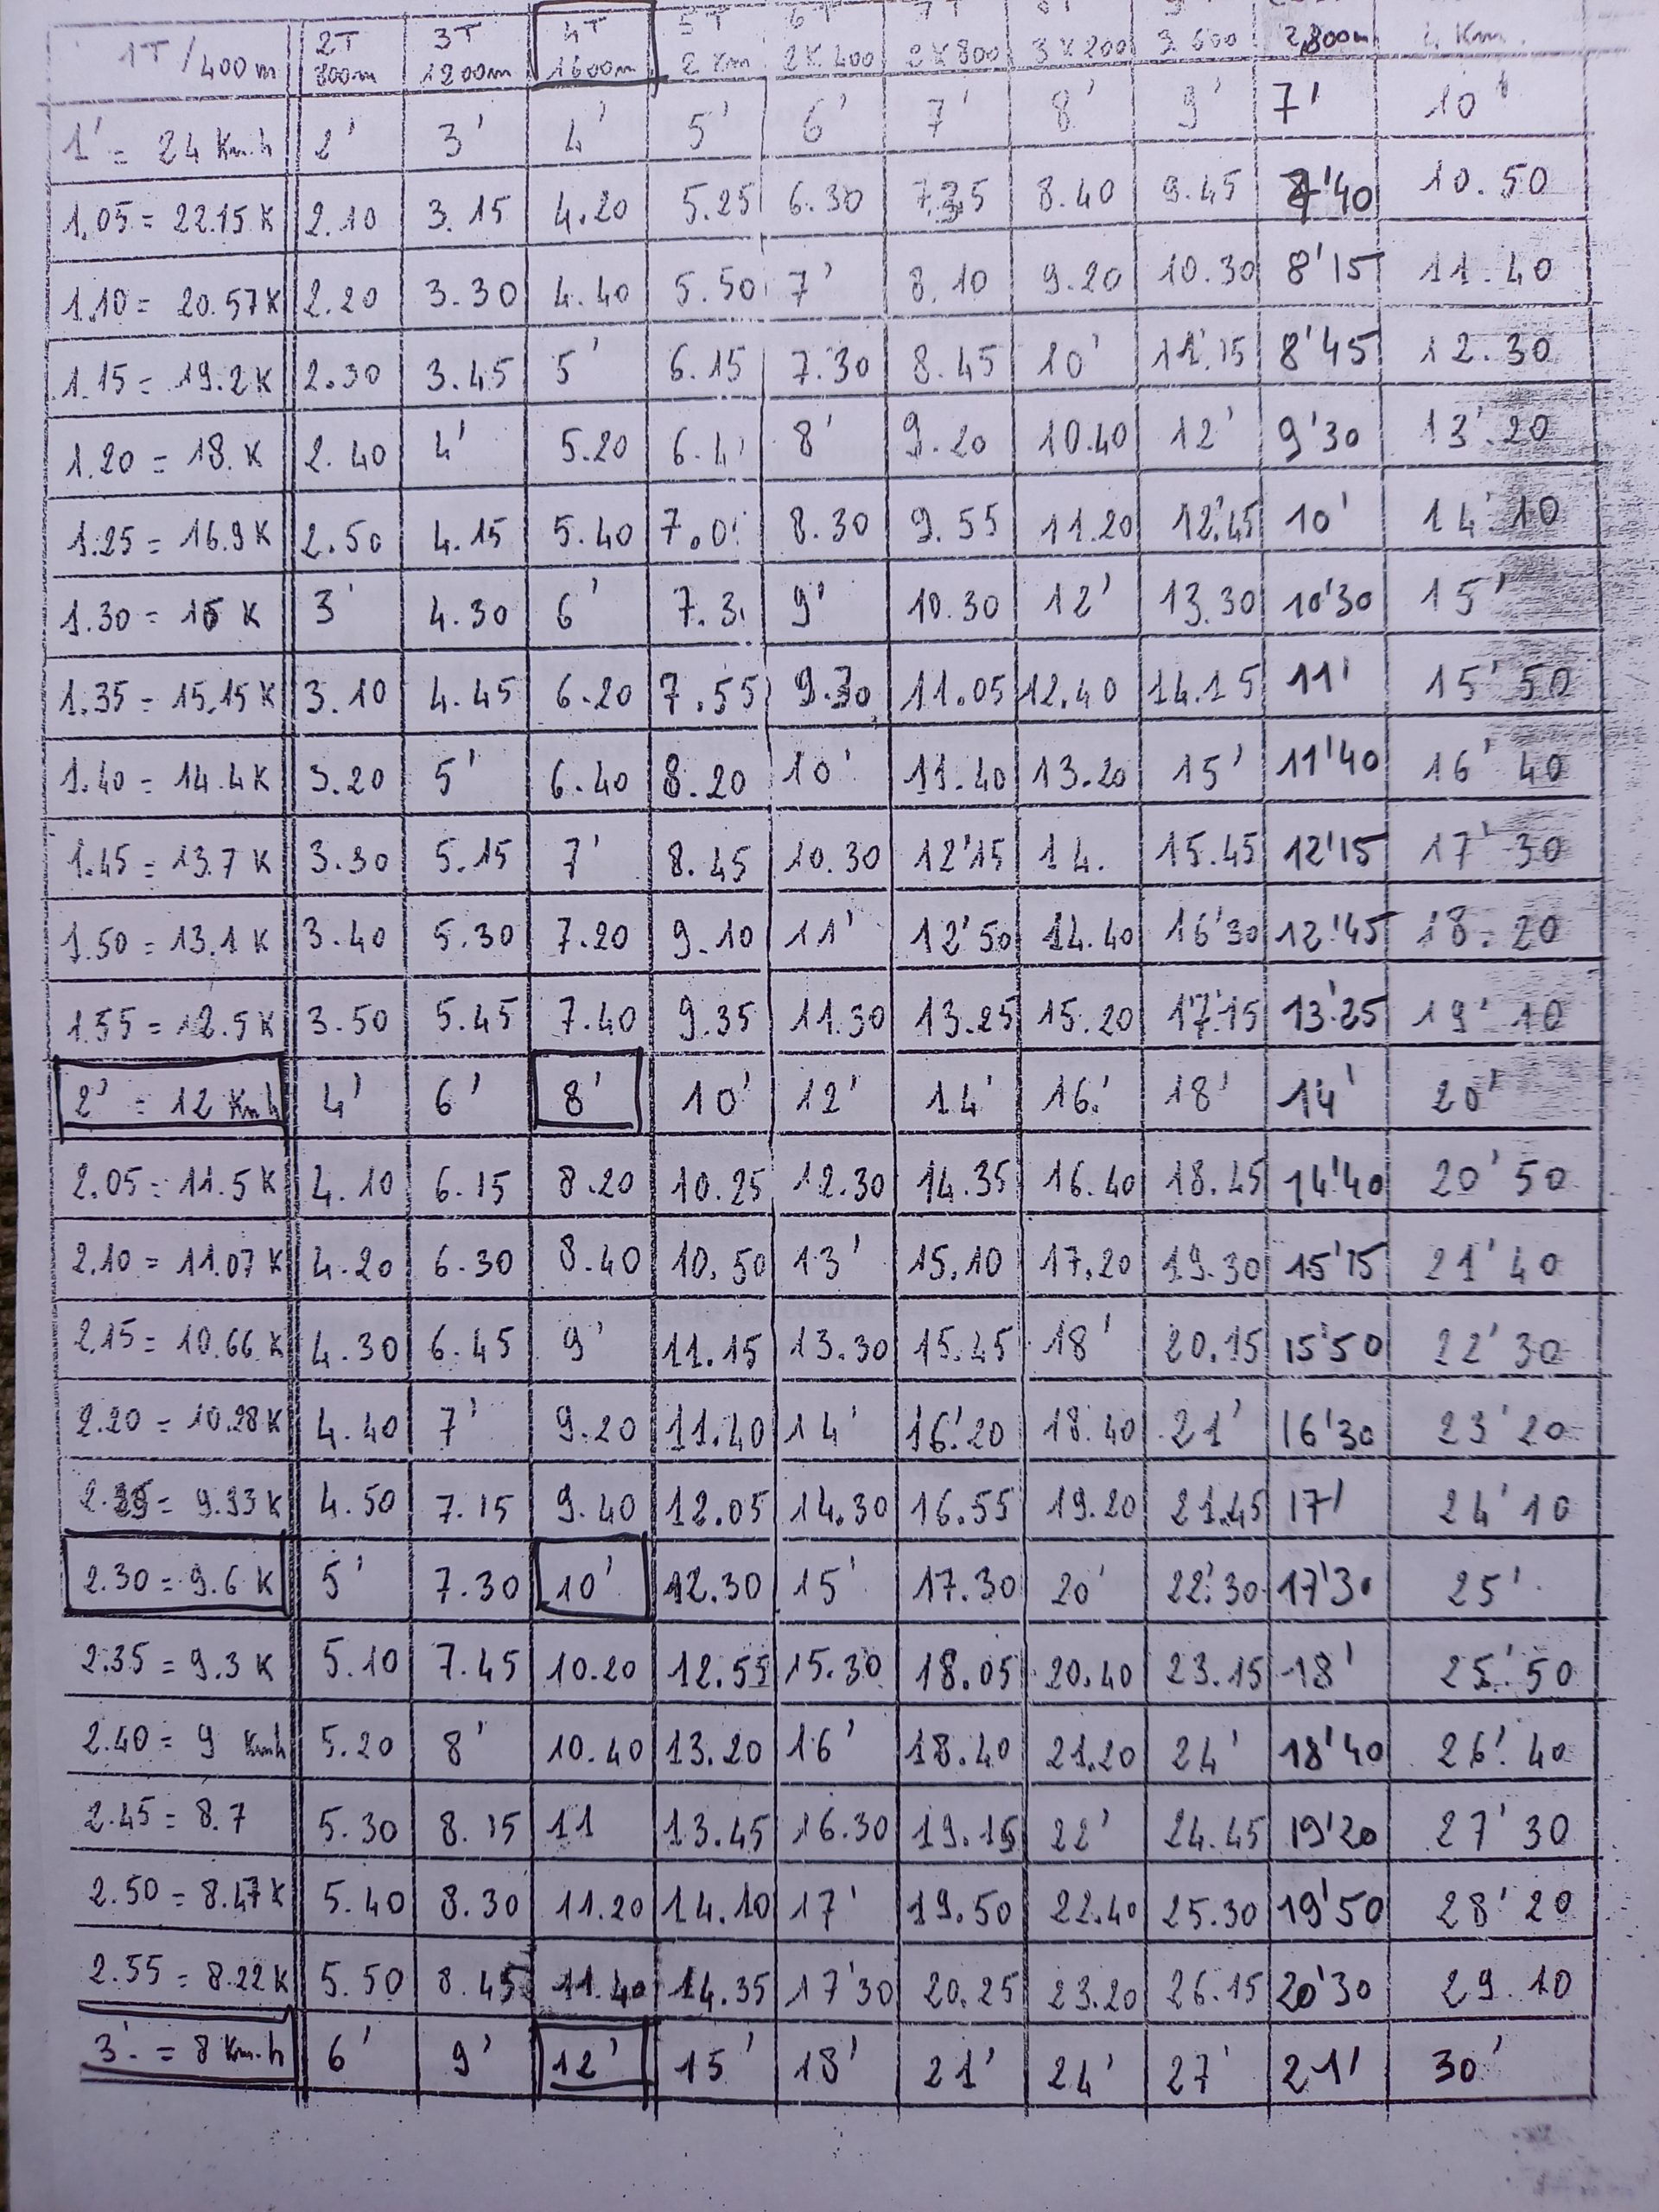 1T/400m 2T 800m 3T 1200m 4T 1600m 5T 2 Km 6T 2K 400 2K800 3K200 3.600 2,800m Km.
1' = 24 Km.h 2' 3' 4' 5' 6' 7' 8' 9' 7' 10'
1.05 = 22.15 K 2.10 3.15 4.20 5.25 6.30 8.40 9.45 10.50
1.10 = 20.57 K 2.20 3.30 4.40 5.50 7' 8.10 9.20 10.30 8'15 11.40
1.15 = 19.2 K 2.30 3.45 5' 6.15 7.30 8.45 10' 11'.15 8'45 12.30
1.20 = 18. K 2.40 4' 5.20 6.4 8' 9.20 10.40 12' 9'30 13'.20
1.25 = 16.9 K 2.50 4.15 5.40 7.0 8.30 9.55 11.20 12'.45 10' 14'.10
1.30 = K 3' 4.30 6' 7.3 9' 10.30 12' 13.30 10'30 15'
1.35 = 15,15 K 3.10 4.45 6.20 7.55 9.30 11.05 12.40 14.15 11' 15'50
1.40 = 14.4 K 3.20 5' 6.40 8.20 10' 11.40 13.20 15' 11'40 16'40
1.45 = 13.7 K 3.30 5.15 7' 8.45 10.30 12'15 14. 15.45 12'15 17'30
1.50 = 13.1 K 3.40 5.30 7.20 9.10 11' 12'50 14.40 16'30 12'45 18.20
1.55 = 12.5 K 3.50 5.45 7.40 9.35 11.30 13.25 15.20 17'15 13'25 19'10
2' = 12 Km.h 4' 6' 8' 10' 12' 14' 16' 18' 14' 20'
2.05 = 11.5 K 4.10 6.15 8.20 10.25 12.30 14.35 16.40 18.45 14'40 20'50
2.10 = 11.07 K 4.20 6.30 8.40 10.50 13' 15.10 17.20 19.30 15'15 21'40
2.15 = 10.66 K 4.30 6.45 9' 11.15 13.30 15.45 18' 20.15 15'50 22'30
2.20 = 10.28 K 4.40 7' 9.20 11.40 14' 16'.20 18.40 21' 16'30 23'20
9.93 K 4.50 7.15 9.40 12.05 14.30 16.55 19.20 21.45 17' 24'10
2.30 = 9.6 K 5' 7.30 10' 12.30 15' 17.30 20' 22'.30 17'30 25'
2.35 = 9.3 K 5.10 7.45 10.20 12.55 15.30 18.05 20.40 23.15 18' 25'.50
2.40 = 9 Km.h 5.20 8' 10.40 13.20 16' 18.40 21.20 24' 18'40 26'.40
2.45 = 8.7 5.30 8.15 11 13.45 16.30 19.15 22' 24.45 19'20 27'30
2.50 = 8.47 K 5.40 8.30 11.20 14.10 17' 19.50 22.40 25.30 19'50 28'20
2.55 = 8.22 K 5.50 8.45 11.40 14.35 17'30 20.25 23.20 26.15 20'30 29.10
3' = 8 Km.h 6' 9' 12' 15' 18' 21' 24' 27' 21' 30'